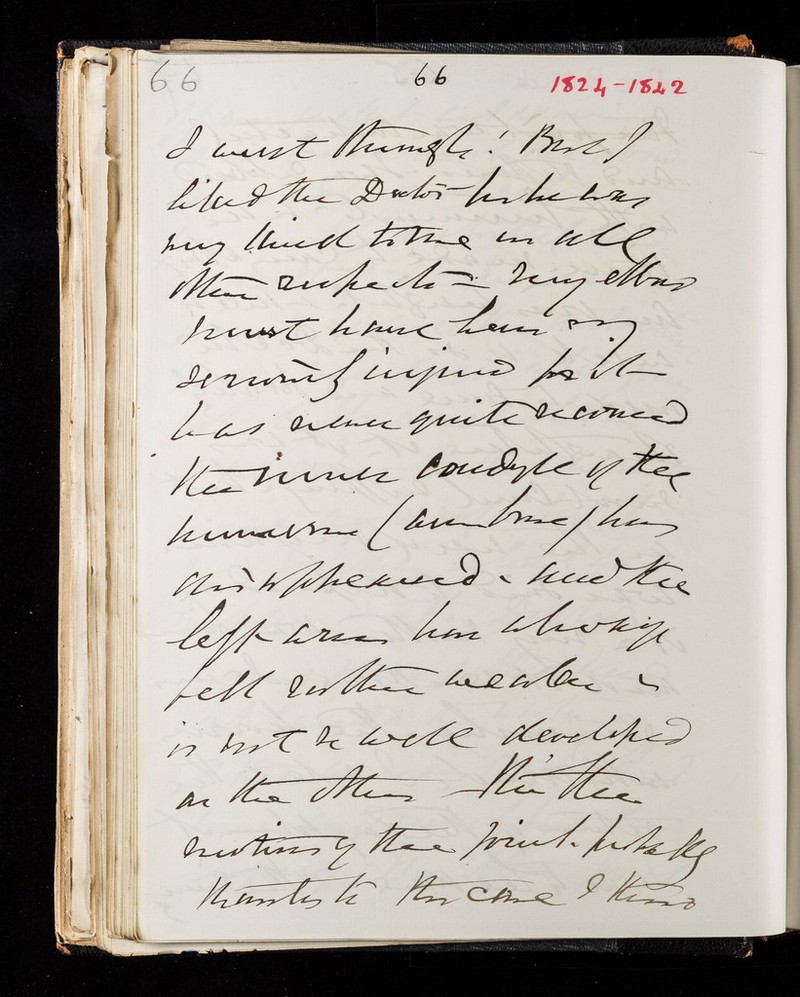 66 66 1824-1842
I went through! But I
liked the Doctor for he was
very kind to me in all
other respects – my elbow
must have been very
seriously injured for it
has never quite recovered
the inner condyle of the
humerus (arm bone) has
disappeared – and the
left arm has always
felt rather weaker &
is not so well developed
as the other – tho' the
motions of the joint probably
thanks to the care I